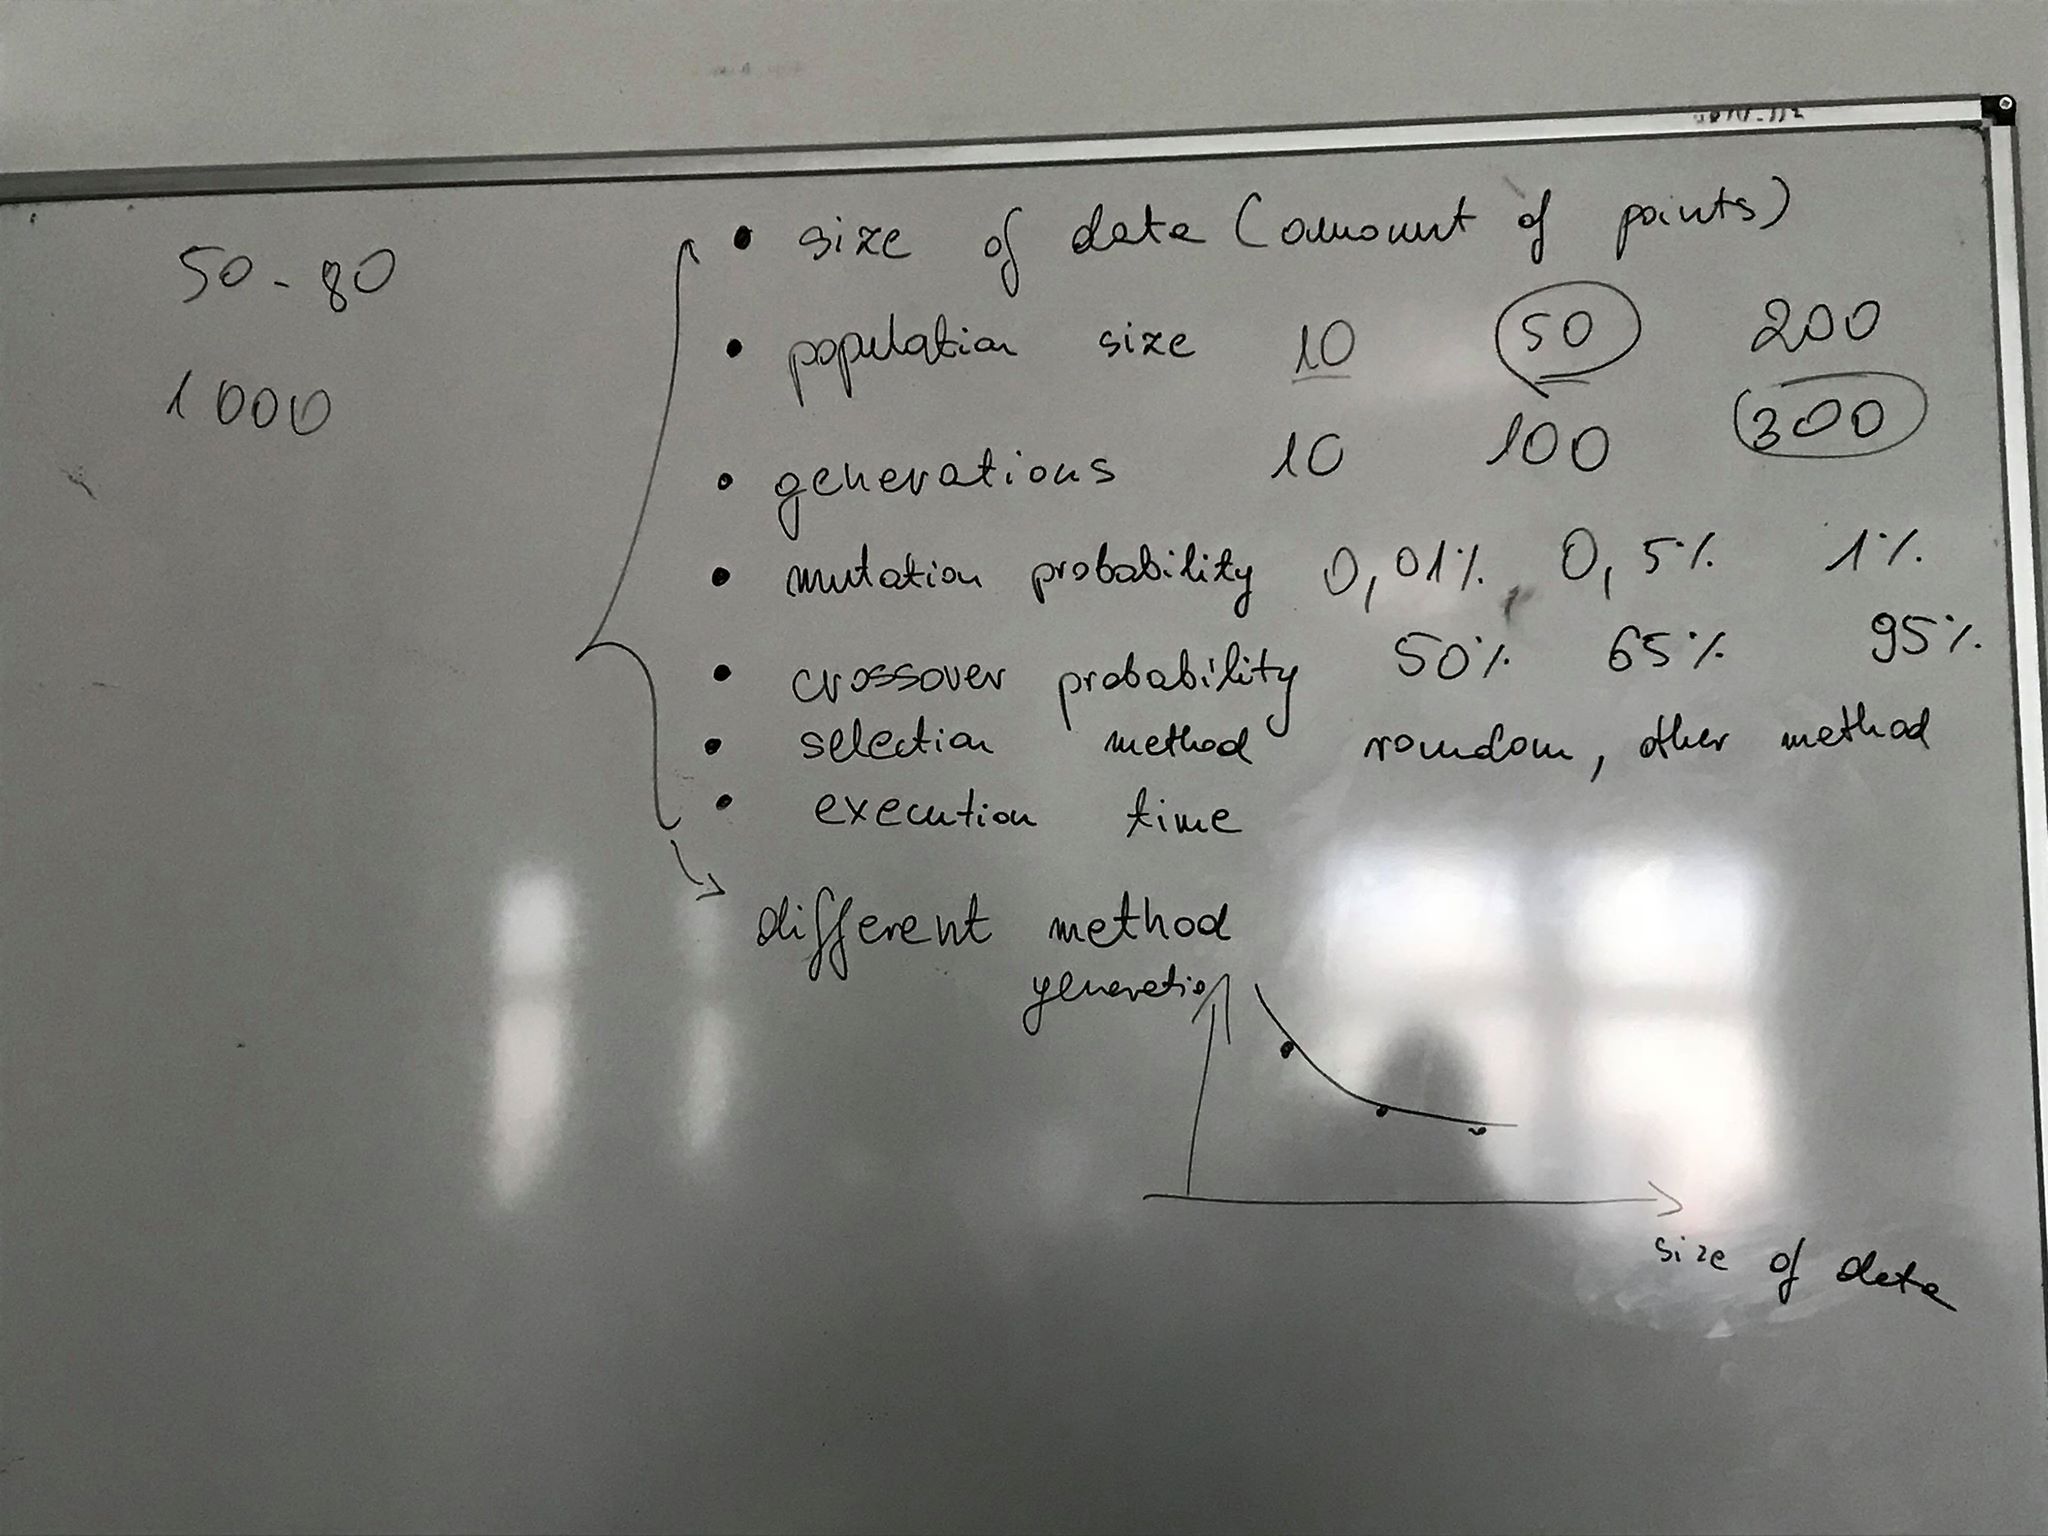 50-80
1000
• size of data (amount of points)
• population size 10 50 200
• generations 10 100 300
• mutation probability 0,01% 0,5% 1%
• crossover probability 50% 65% 95%
• selection method random, other method
• execution time
different method
generatio
size of data